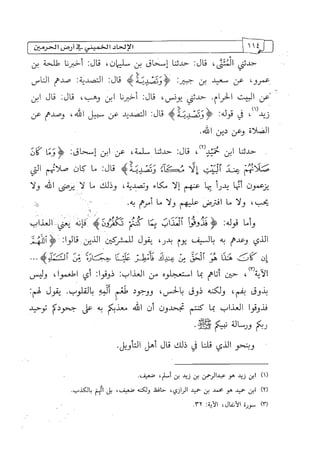 ١١٤ الإلحاد الخميني في أرض الحرمين
حدثني الْمُثَنَّى، قال: حدثنا إسحاق بن سليمان، قال: أخبرنا طلحة بن
عمرو، عن سعيد بن جبير: ﴿وَتَصْدِيَةً﴾ قال: التصدية: صدهم الناس
عن البيت الحرام. حدثني يونس، قال: أخبرنا ابن وهب، قال: قال ابن
زيد(١)، في قوله: ﴿وَتَصْدِيَةً﴾ قال: التصديد عن سبيل الله، وصدهم عن
الصلاة وعن دين الله.
حدثنا ابن حُمَيْدٍ(٢)، قال: حدثنا سلمة، عن ابن إسحاق: ﴿وَمَا كَانَ
صَلَاتُهُمْ عِندَ الْبَيْتِ إِلَّا مُكَاءً وَتَصْدِيَةً﴾ قال: ما كان صلاتهم التي
يزعمون أنَّها يدرأ بها عنهم إلا مكاء وتصدية، وذلك ما لا يرضى الله ولا
يحب، ولا ما افترض عليهم ولا ما أمرهم به.
وأما قوله: ﴿فَذُوقُوا الْعَذَابَ بِمَا كُنتُمْ تَكْفُرُونَ﴾ فإنه يعني العذاب
الذي وعدهم به بالسيف يوم بدر، يقول للمشركين الذين قالوا: ﴿اللَّهُمَّ
إِن كَانَ هَذَا هُوَ الْحَقَّ مِنْ عِندِكَ فَأَمْطِرْ عَلَيْنَا حِجَارَةً مِّنَ السَّمَاءِ﴾...
الآية(٣)، حين أتاهم بما استعجلوه من العذاب: ذوقوا: أي اطعموا، وليس
بذوق بفم، ولكنه ذوق بالحس، ووجود طَعْمِ أَلَمِهِ بالقلوب. يقول لهم:
فذوقوا العذاب بما كنتم تجحدون أن الله معذبكم به على جحودكم توحيد
ربكم ورسالة نبيكم ﷺ.
وبنحو الذي قلنا في ذلك قال أهل التأويل.
(١) ابن زيد هو عبدالرحمن بن زيد بن أسلم، ضعيف.
(٢) ابن حميد هو محمد بن حميد الرازي، حافظ ولكنه ضعيف، بل اتُّهِمَ بالكذب.
(٣) سورة الأنفال، الآية: ٣٢.